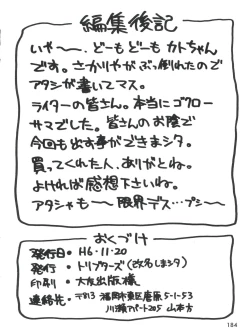 編集後記
いや〜〜、どーも どーも カトちゃん
です。さかりやがぶっ倒れたので
アタシが書いてマス。
ライターの皆さん。本当にゴクロー
サマでした。皆さんのお陰で
今回も出す事ができまシタ。
買ってくれた人、ありがとね。
よければ感想下さいね。
アタシャも〜〜限界デス…プシ〜〜
おくづけ
発行日・H6・11・20
発行・トリプターズ(改名しまシタ)
印刷・大友出版様
連絡先・〒813 福岡市東区唐原5-1-53
川瀬アパート205 山本方
184